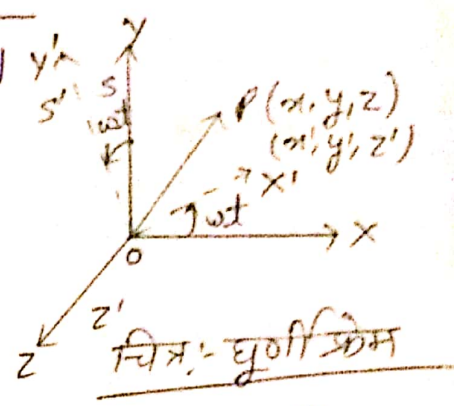 Y
Y'
S'
S
ωt
P(x, y, z)
(x', y', z')
X'
ωt
X
O
Z'
Z
चित्र:- घूर्णी फ्रेम